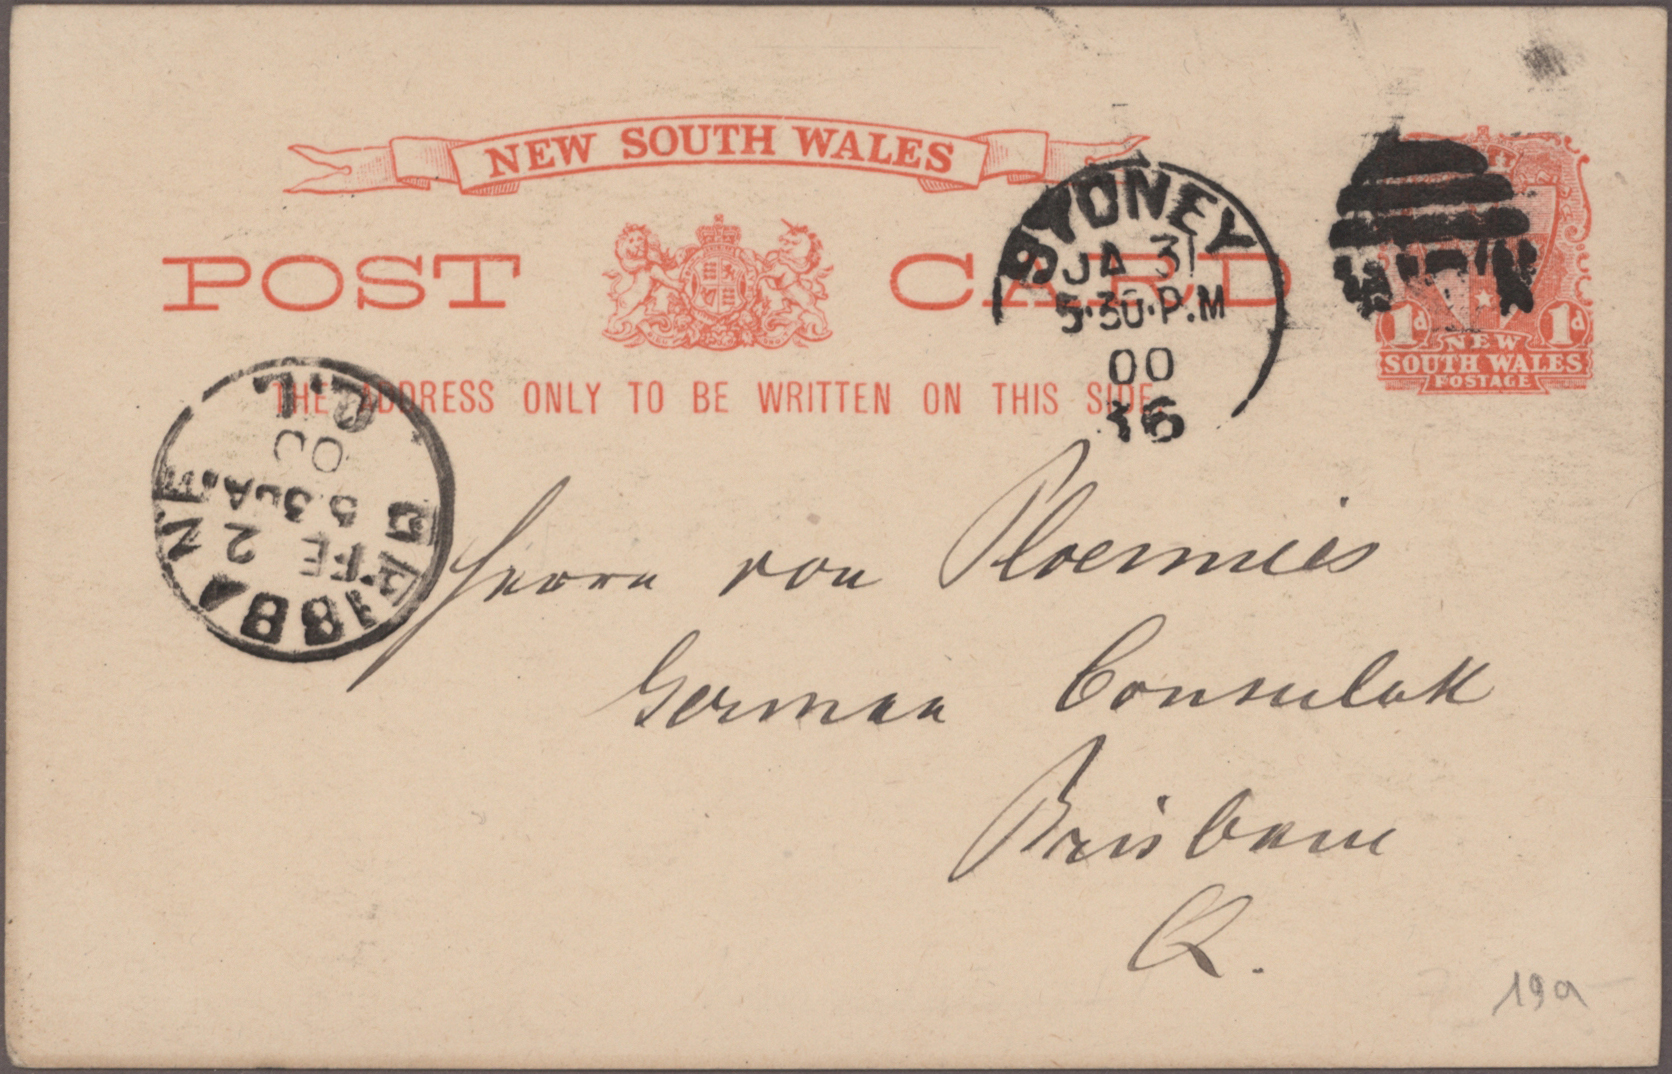 NEW SOUTH WALES
POST CARD
THE ADDRESS ONLY TO BE WRITTEN ON THIS SIDE
SYDNEY
JA 31
5.30.P.M
00
36
1d 1d
NEW
SOUTH WALES
POSTAGE
BRISBANE
FE 2
5 30 AM
00
Q.L
Herrn von Ploennies
German Consulate
Brisbane
Q.
19a